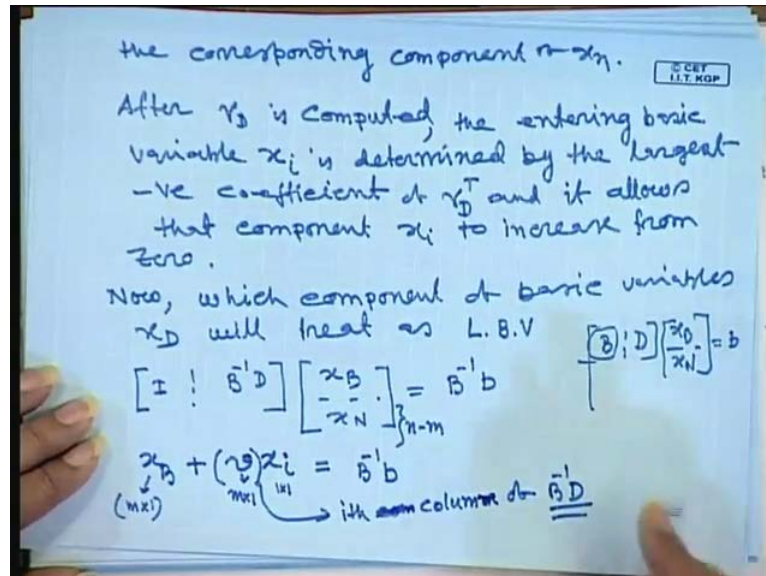 the corresponding component of x_η.
© CET
I.I.T. KGP
After γ_D is computed, the entering basic
variable x_i is determined by the largest
-ve coefficient of γ_D^T and it allows
that component x_i to increase from
zero.
Now, which component of basic variables
x_D will treat as L.B.V
[B ¦ D] [x_B / x_N] = b
[I ¦ B^{-1}D] [x_B / x_N]}_{n-m} = B^{-1}b
x_B + (v) x_i = B^{-1}b
(m×1) m×1 1×1 ith column of B^{-1}D